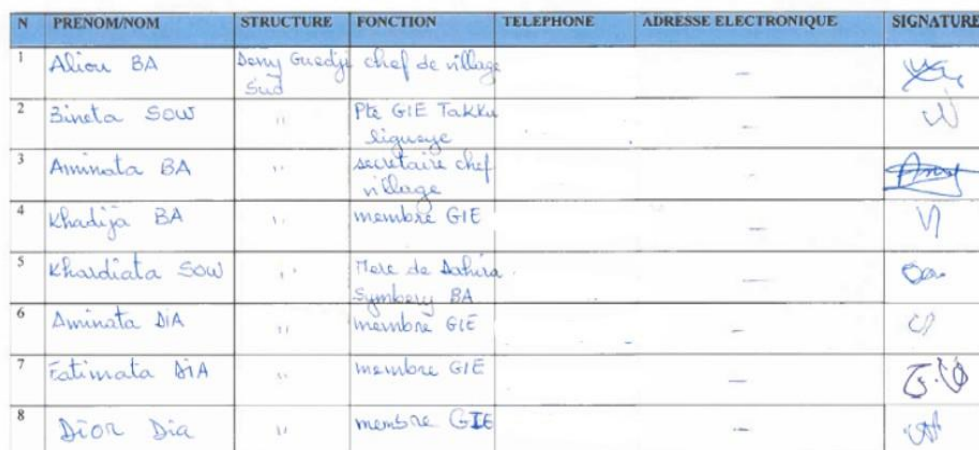 N PRENOM/NOM STRUCTURE FONCTION TELEPHONE ADRESSE ELECTRONIQUE SIGNATURE
1 Aliou BA Deny Guedji Sud chef de village –
2 Bineta SOW " Pte GIE Takku ligueye –
3 Aminata BA " secretaire chef village –
4 Khadija BA " membre GIE –
5 Khardiata SOW " Mere de Dahira BA –
6 Aminata DIA " membre GIE –
7 Fatimata DIA " membre GIE –
8 Dior Dia " membre GIE –